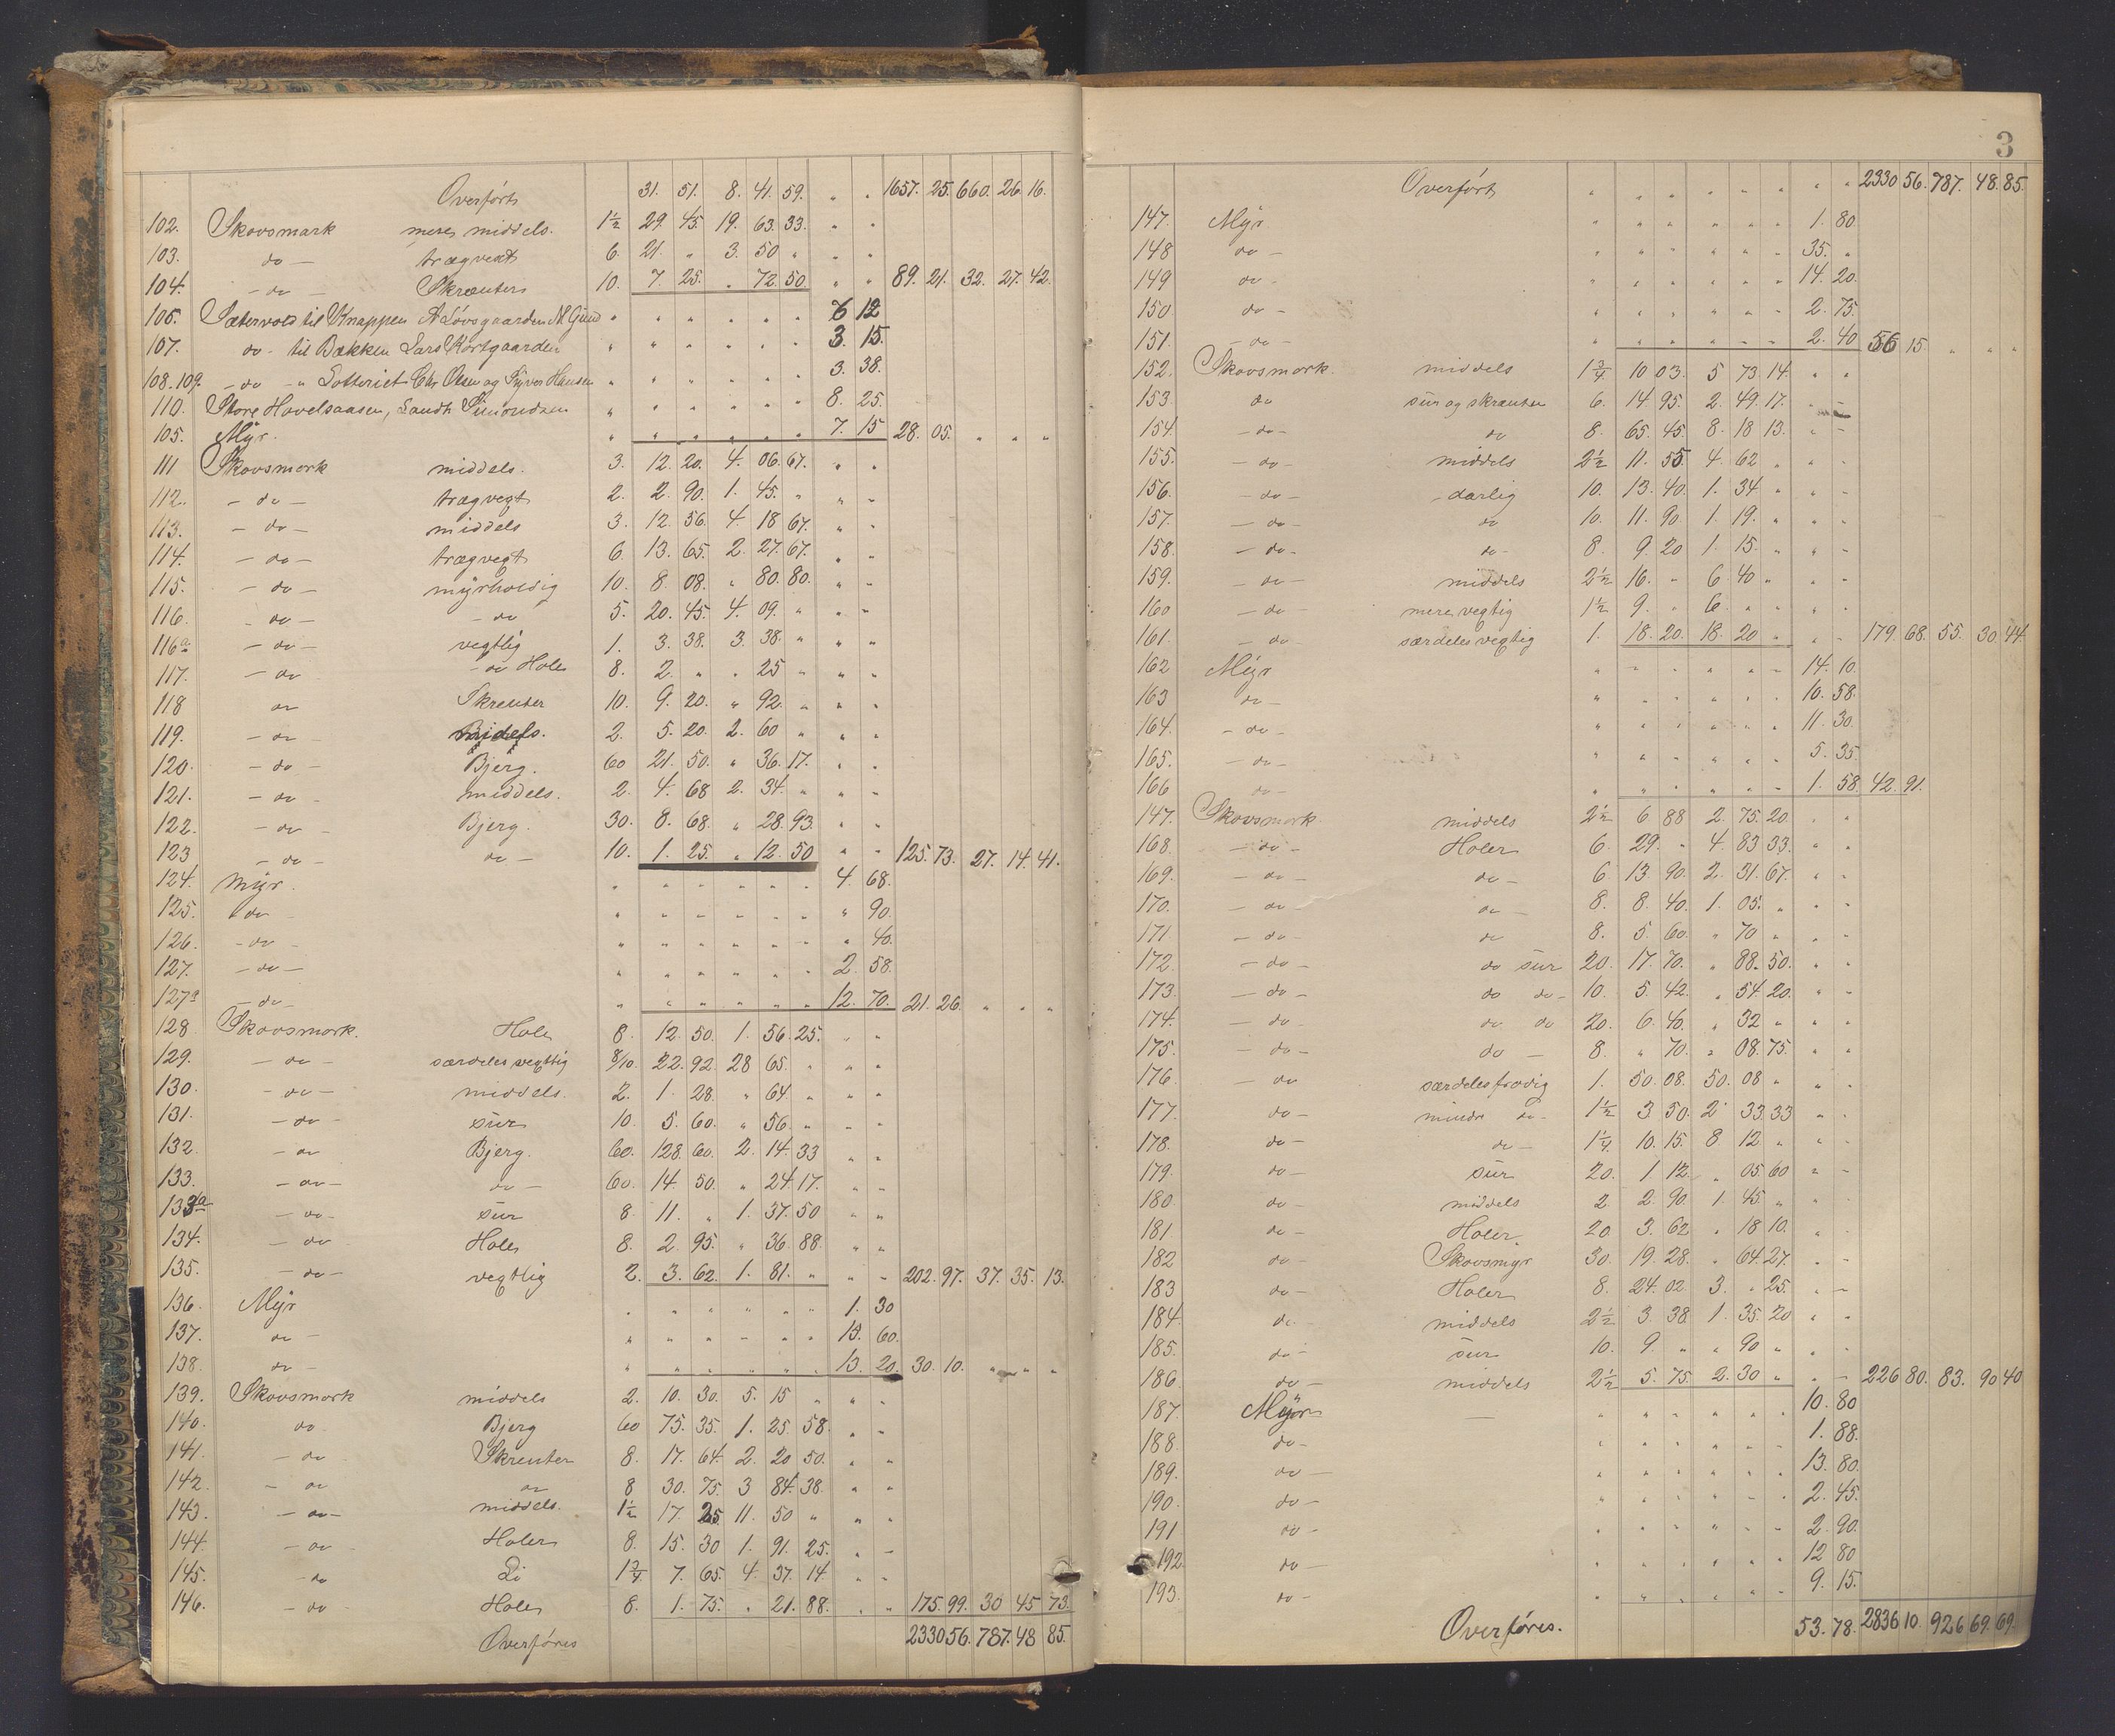 Overført 31. 51. 8. 41. 59. " " 1657. 25. 660. 26. 16.
102. Skovsmark mere middels. 1½ 29. 45. 19. 63. 33. " "
103. do — trægvegt 6. 21. " 3. 50 " " "
104. - do - Skrænter 10. 7. 25. " 72. 50. " " 89. 21. 32. 27. 42.
106. Sætervold til Knappen A Løvsgaarden M Gund " " " " " " " 6 12
107. do - til Bækken Lars Kortgaarden " " " " " " " 3. 15.
108. 109. - do - " Lotteriet Chr Olsen og Syver Hansen " " " " " " " 3. 38.
110. Store Havelsaasen, Lauth Simondsen " " " " " " " 8. 25.
105. Myr. " " " " " " " 7. 15 28. 05. " " "
111 Skovsmork middels. 3. 12. 20. 4. 06. 67. " "
112. - do - trægvegt 2. 2. 90. 1. 45. " " "
113. - do - middels 3. 12. 56. 4. 18 67. " "
114. - do - trægvegt 6. 13. 65. 2. 27. 67. " "
115. - do - myrholdig 10. 8. 08. " 80. 80. " "
116. - do - - do 5. 20. 45. 4. 09. " " "
116a - do - vegtlig 1. 3. 38. 3. 38. " " "
117. - do - do Holer 8. 2. " " 25 " " "
118 do Skrenter 10. 9. 20. " 92. " " "
119. - do - Midels. 2. 5. 20. 2. 60 " " "
120. - do - Bjerg. 60 21. 50. " 36. 17. " "
121. - do - middels. 2. 4. 68 2. 34. " " "
122. - do - Bjerg. 30. 8. 68. " 28. 93. " "
123 - do - do - 10. 1. 25. " 12. 50 " " 125. 73. 27. 14. 41.
124. Myr. " " " " " " 4. 68.
125. " do - " " " " " " " 90.
126. - do - " " " " " " " 40.
127. - do - " " " " " " 2. 58.
127a - do - " " " " " " 12. 70. 21. 26. " " "
128 Skovsmork. Holer 8. 12. 50. 1. 56. 25. " "
129. - do - særdeles vegttig 8/10. 22. 92. 28 65. " " "
130. - do - middels. 2. 1. 28. " 64. " " "
131. - do - sür 10. 5. 60. " 56. " " "
132. - do Bjerg. 60. 128. 60. 2. 14. 33 " "
133. - do - do - 60. 14. 50. " 24. 17. " "
133a - do - sür 8. 11. " 1. 37. 50 " "
134. - do Holer 8. 2. 95. " 36. 88. " "
135. - do - vegtlig 2. 3. 62. 1. 81. " " " 202. 97. 37. 35. 13.
136. Myr " " " " " " 1. 30
137. do - " " " " " " 15. 60.
138. do - " " " " " " 13. 20. 30. 10. " " "
139. Skovsmork middels 2. 10. 30. 5. 15 " " "
140. do. Bjerg 60 75. 35. 1. 25. 58. " "
141. - do Skrenter 8. 17. 64. 2. 20 50. " "
142. - do do 8 30. 75. 3 84. 38. " "
143. - do - middels. 1½ 17. 25 11. 50 " " "
144. - do Holer 8. 15. 30 1. 91. 25. " "
145. - do Li 1¾ 7. 65. 4. 37. 14. " "
146. - do - Holer 8. 1. 75. " 21. 88. " " 175. 99. 30 45 73.
Overføres 2330 56. 787. 48 85.
3
Overført " " " " " " " " 2330 56. 787. 48. 85.
147. Myr " " " " " " 1. 80.
148 do - " " " " " " 35. "
149 do - " " " " " " 14. 20.
150 do - " " " " " " 2. 75.
151. - do - " " " " " " 2. 40 56 15. " " "
152. Skovsmork. middels 1¾ 10 03. 5 73. 14. " "
153. do sür og skrænter 6. 14. 95. 2. 49. 17. " "
154. - do - do 8. 65. 45. 8. 18 13. " "
155. - do - middels 2½ 11. 55. 4. 62 " " "
156. - do - darlig 10. 13. 40. 1. 34 " " "
157. - do - do 10. 11. 90. 1. 19. " " "
158. - do - do - 8. 9. 20 1. 15. " " "
159. - do - middels 2½ 16. " 6. 40 " " "
160 - do - mere vegtig 1½ 9. " 6. " " " "
161. - do - særdeles vegtig 1. 18. 20. 18. 20 " " - 179. 68. 55. 30. 44.
162 Myr " " " " " " 14. 10.
163 do - " " " " " " 10. 58.
164. - do - " " " " " " 11. 30.
165. - do - " " " " " " 5. 35.
166 do - " " " " " " 1. 58. 42. 91.
147. Skovsmork. middels 2½ 6 88 2. 75. 20 " "
168. - do - Holer 6. 29. " 4. 83 33. " "
169. - do - do - 6 13. 90. 2. 31. 67. " "
170. - do - do - 8. 8. 40. 1. 05. " " "
171 - do - do 8. 5. 60. " 70 " " "
172. - do - do sür 20. 17. 70. " 88. 50. " "
173. - do - do do - 10. 5. 42. " 54. 20. " "
174. - do. do do 20. 6. 40. " 32 " " "
175. - do - do - 8. " 70. " 08. 75. " "
176. - do særdeles frodig 1. 50. 08. 50. 08 " " "
177. do - mindre do - 1½ 3. 50. 2. 33. 33 " "
178. do - do - 1¼ 10. 15. 8 12 " " "
179. do - sür 20. 1. 12. " 05. 60 " "
180. do - middels 2 2. 90 1. 45 " " "
181. do - Holer. 20. 3. 62 " 18 10. " "
182 do - Skovsmyr 30. 19. 28. " 64. 27. " "
183 do - Holer 8. 24. 02. 3. " 25. " -
184. do - middels 2½ 3. 38. 1. 35. 20 " "
185. do - sur 10. 9. " " 90 " " "
186. do - middels 2½ 5. 75. 2. 30 " " - 226 80. 83. 90 40
187. Myr — " " " " " " 10. 80
188. do - " " " " " " 1. 88.
189. do - " " " " " " 13. 80.
190. do - " " " " " " 2. 45.
191 do - " " " " " " 2. 90.
192. do - " " " " " " 12 80
193. do - " " " " " " 9. 15.
Overføres. 53. 78. 2836 10. 926 69. 69.